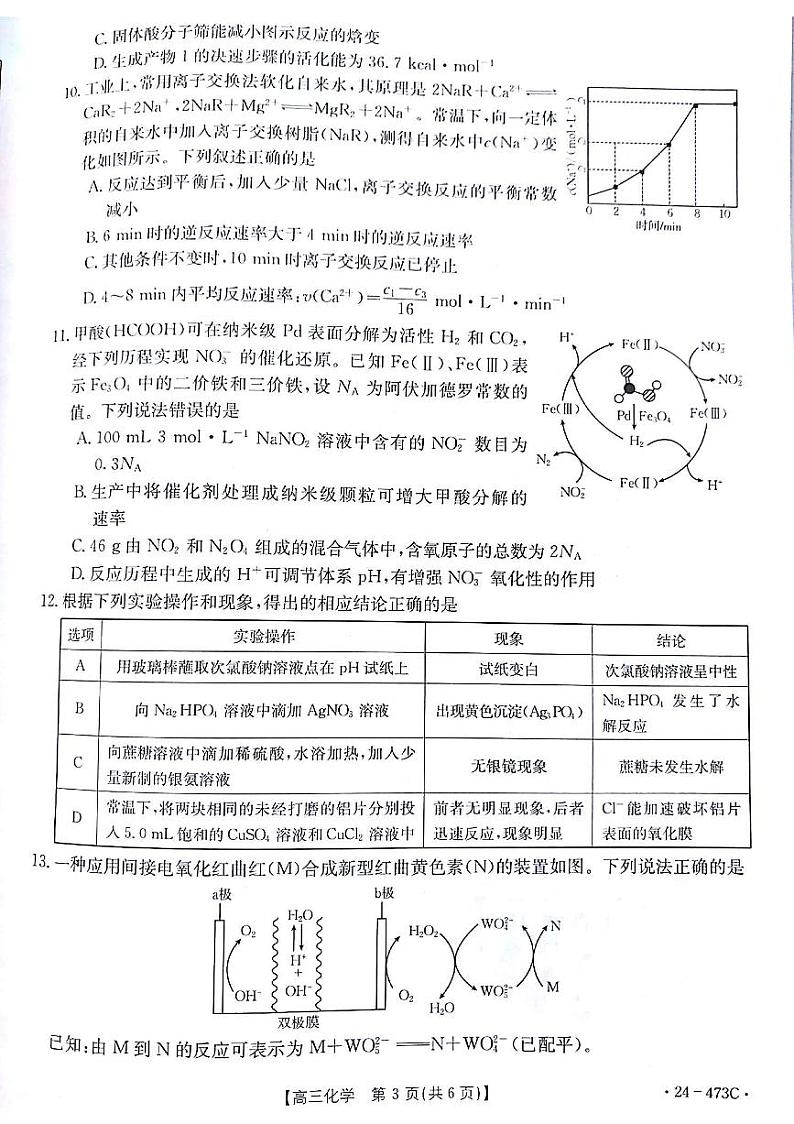 C. 固体酸分子筛能减小图示反应的焓变
D. 生成产物 1 的决速步骤的活化能为 36.7 kcal·mol⁻¹
10. 工业上,常用离子交换法软化自来水,其原理是 2NaR+Ca²⁺⇌
CaR₂+2Na⁺,2NaR+Mg²⁺⇌MgR₂+2Na⁺。常温下,向一定体
积的自来水中加入离子交换树脂(NaR),测得自来水中c(Na⁺)变
化如图所示。下列叙述正确的是
A. 反应达到平衡后,加入少量 NaCl,离子交换反应的平衡常数
减小
B. 6 min 时的逆反应速率大于 4 min 时的逆反应速率
C. 其他条件不变时,10 min 时离子交换反应已停止
D. 4~8 min 内平均反应速率:v(Ca²⁺)=(c₁−c₃)/16 mol·L⁻¹·min⁻¹
c(Na⁺)/(mol·L⁻¹)
c₁
c₂
c₃
0 2 4 6 8 10
时间/min
11. 甲酸(HCOOH)可在纳米级 Pd 表面分解为活性 H₂ 和 CO₂,
经下列历程实现 NO₃⁻ 的催化还原。已知 Fe(Ⅱ)、Fe(Ⅲ)表
示 Fe₃O₄ 中的二价铁和三价铁,设 N_A 为阿伏加德罗常数的
值。下列说法错误的是
A. 100 mL 3 mol·L⁻¹ NaNO₂ 溶液中含有的 NO₂⁻ 数目为
0.3N_A
B. 生产中将催化剂处理成纳米级颗粒可增大甲酸分解的
速率
C. 46 g 由 NO₂ 和 N₂O₄ 组成的混合气体中,含氧原子的总数为 2N_A
D. 反应历程中生成的 H⁺可调节体系 pH,有增强 NO₃⁻ 氧化性的作用
H⁺ Fe(Ⅱ) NO₃⁻
NO₂⁻
Fe(Ⅲ) Pd Fe₃O₄ Fe(Ⅲ)
H₂
N₂
NO₂⁻ Fe(Ⅱ) H⁺
12. 根据下列实验操作和现象,得出的相应结论正确的是
选项 实验操作 现象 结论
A 用玻璃棒蘸取次氯酸钠溶液点在 pH 试纸上 试纸变白 次氯酸钠溶液呈中性
B 向 Na₂HPO₄ 溶液中滴加 AgNO₃ 溶液 出现黄色沉淀(Ag₃PO₄) Na₂HPO₄ 发生了水
解反应
C 向蔗糖溶液中滴加稀硫酸,水浴加热,加入少
量新制的银氨溶液 无银镜现象 蔗糖未发生水解
D 常温下,将两块相同的未经打磨的铝片分别投 前者无明显现象,后者 Cl⁻能加速破坏铝片
入 5.0 mL 饱和的 CuSO₄ 溶液和 CuCl₂ 溶液中 迅速反应,现象明显 表面的氧化膜
13. 一种应用间接电氧化红曲红(M)合成新型红曲黄色素(N)的装置如图。下列说法正确的是
a极 b极
O₂ H₂O H₂O₂ WO₄²⁻ N
H⁺
+
OH⁻ OH⁻ O₂ H₂O WO₅²⁻ M
双极膜
已知:由 M 到 N 的反应可表示为 M+WO₅²⁻══N+WO₄²⁻(已配平)。
【高三化学 第 3 页(共 6 页)】
·24-473C·